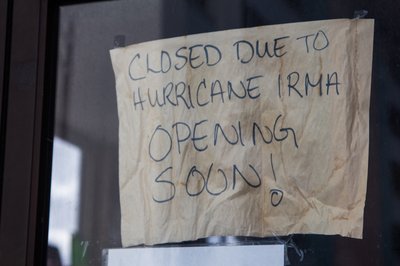 CLOSED DUE TO
HURRICANE IRMA
OPENING
SOON!